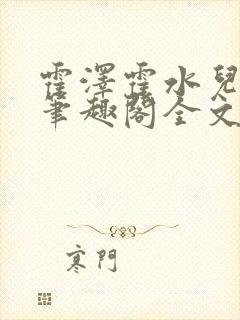 霍澤霍水兒
筆趣閣全文
寒門